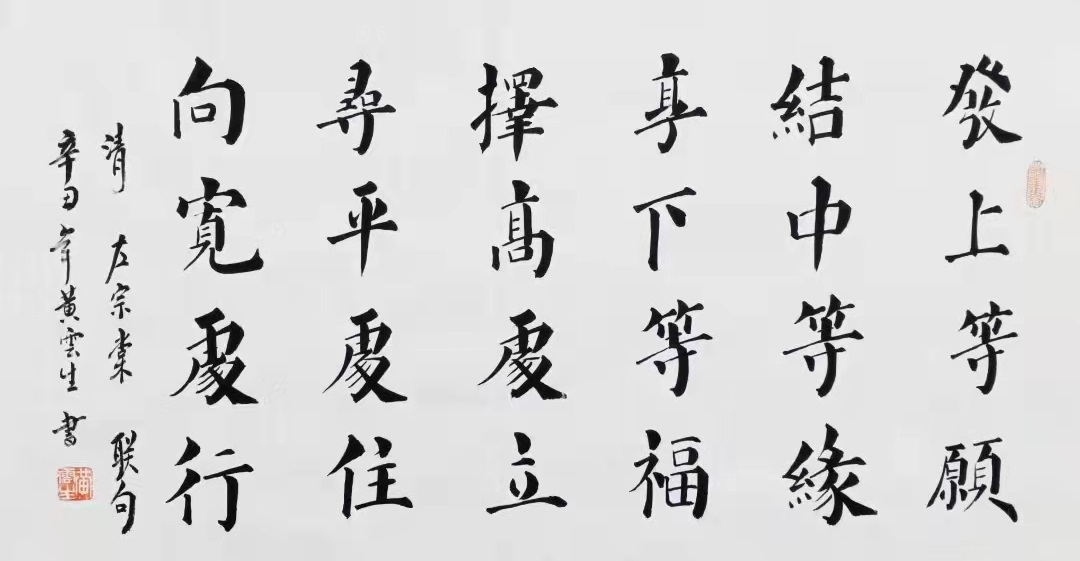 發上等願
結中等緣
享下等福
擇高處立
尋平處住
向寬處行
清 左宗棠 联句
辛丑年黄雲生書